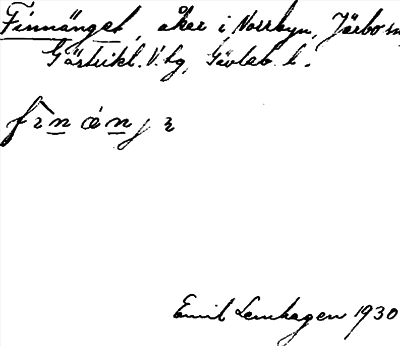 Finnänget, åker i Norrbyn, Järbo sn,
Gästrikl. V. hg, Gävleb. l.
Emil Lenhagen 1930